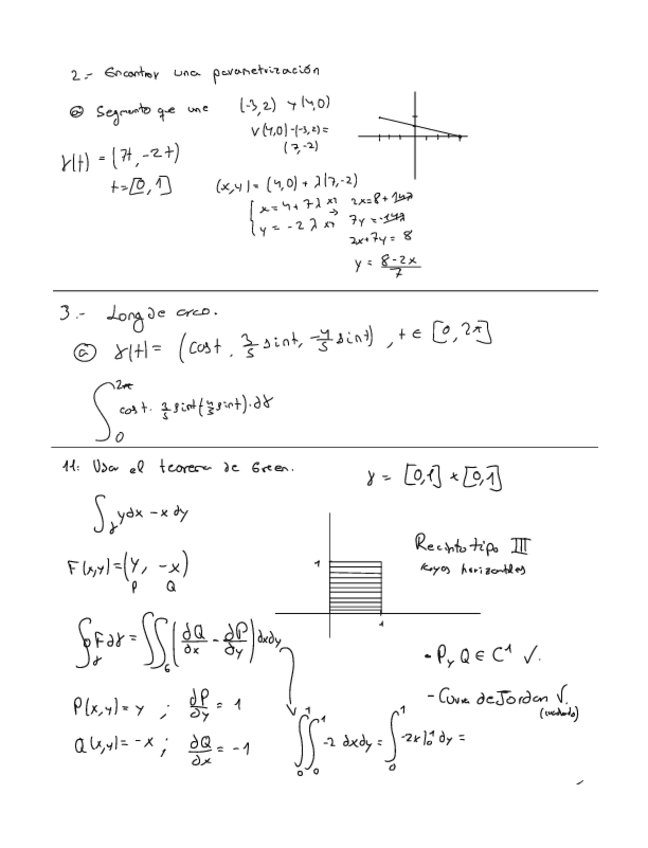 2.- Encontrar una parametrización
ⓐ Segmento que une (-3,2) y (4,0)
V(4,0)-(-3,2)=
(7,-2)
γ(t) = (7t, -2t)
t=[0,1]
(x,y) = (4,0) + λ(7,-2)
x = 4 + 7λ
2x = 8 + 14λ
y = -2λ
7y = -14λ
2x+7y = 8
y = 8-2x / 7
3.- Long de arco.
ⓐ γ(t) = (cost, 3/5 sint, -4/5 sint), t ∈ [0, 2π]
∫₀^2π cost. 3/5 sint(4/5 sint).dγ
11: Usa el teorema de Green.
γ = [0,1] × [0,1]
∫_γ ydx - x dy
F(x,y) = (y, -x)
P Q
1
1
Recinto tipo III
Rayos horizontales
∮_γ F dγ = ∬_G (∂Q/∂x - ∂P/∂y) dxdy
- P y Q ∈ C¹ √.
- Curva de Jordan √.
(cuadrado)
P(x,y) = y ; ∂P/∂y = 1
Q(x,y) = -x ; ∂Q/∂x = -1
∫₀¹∫₀¹ -2 dxdy = ∫₀¹ -2x|₀¹ dy =